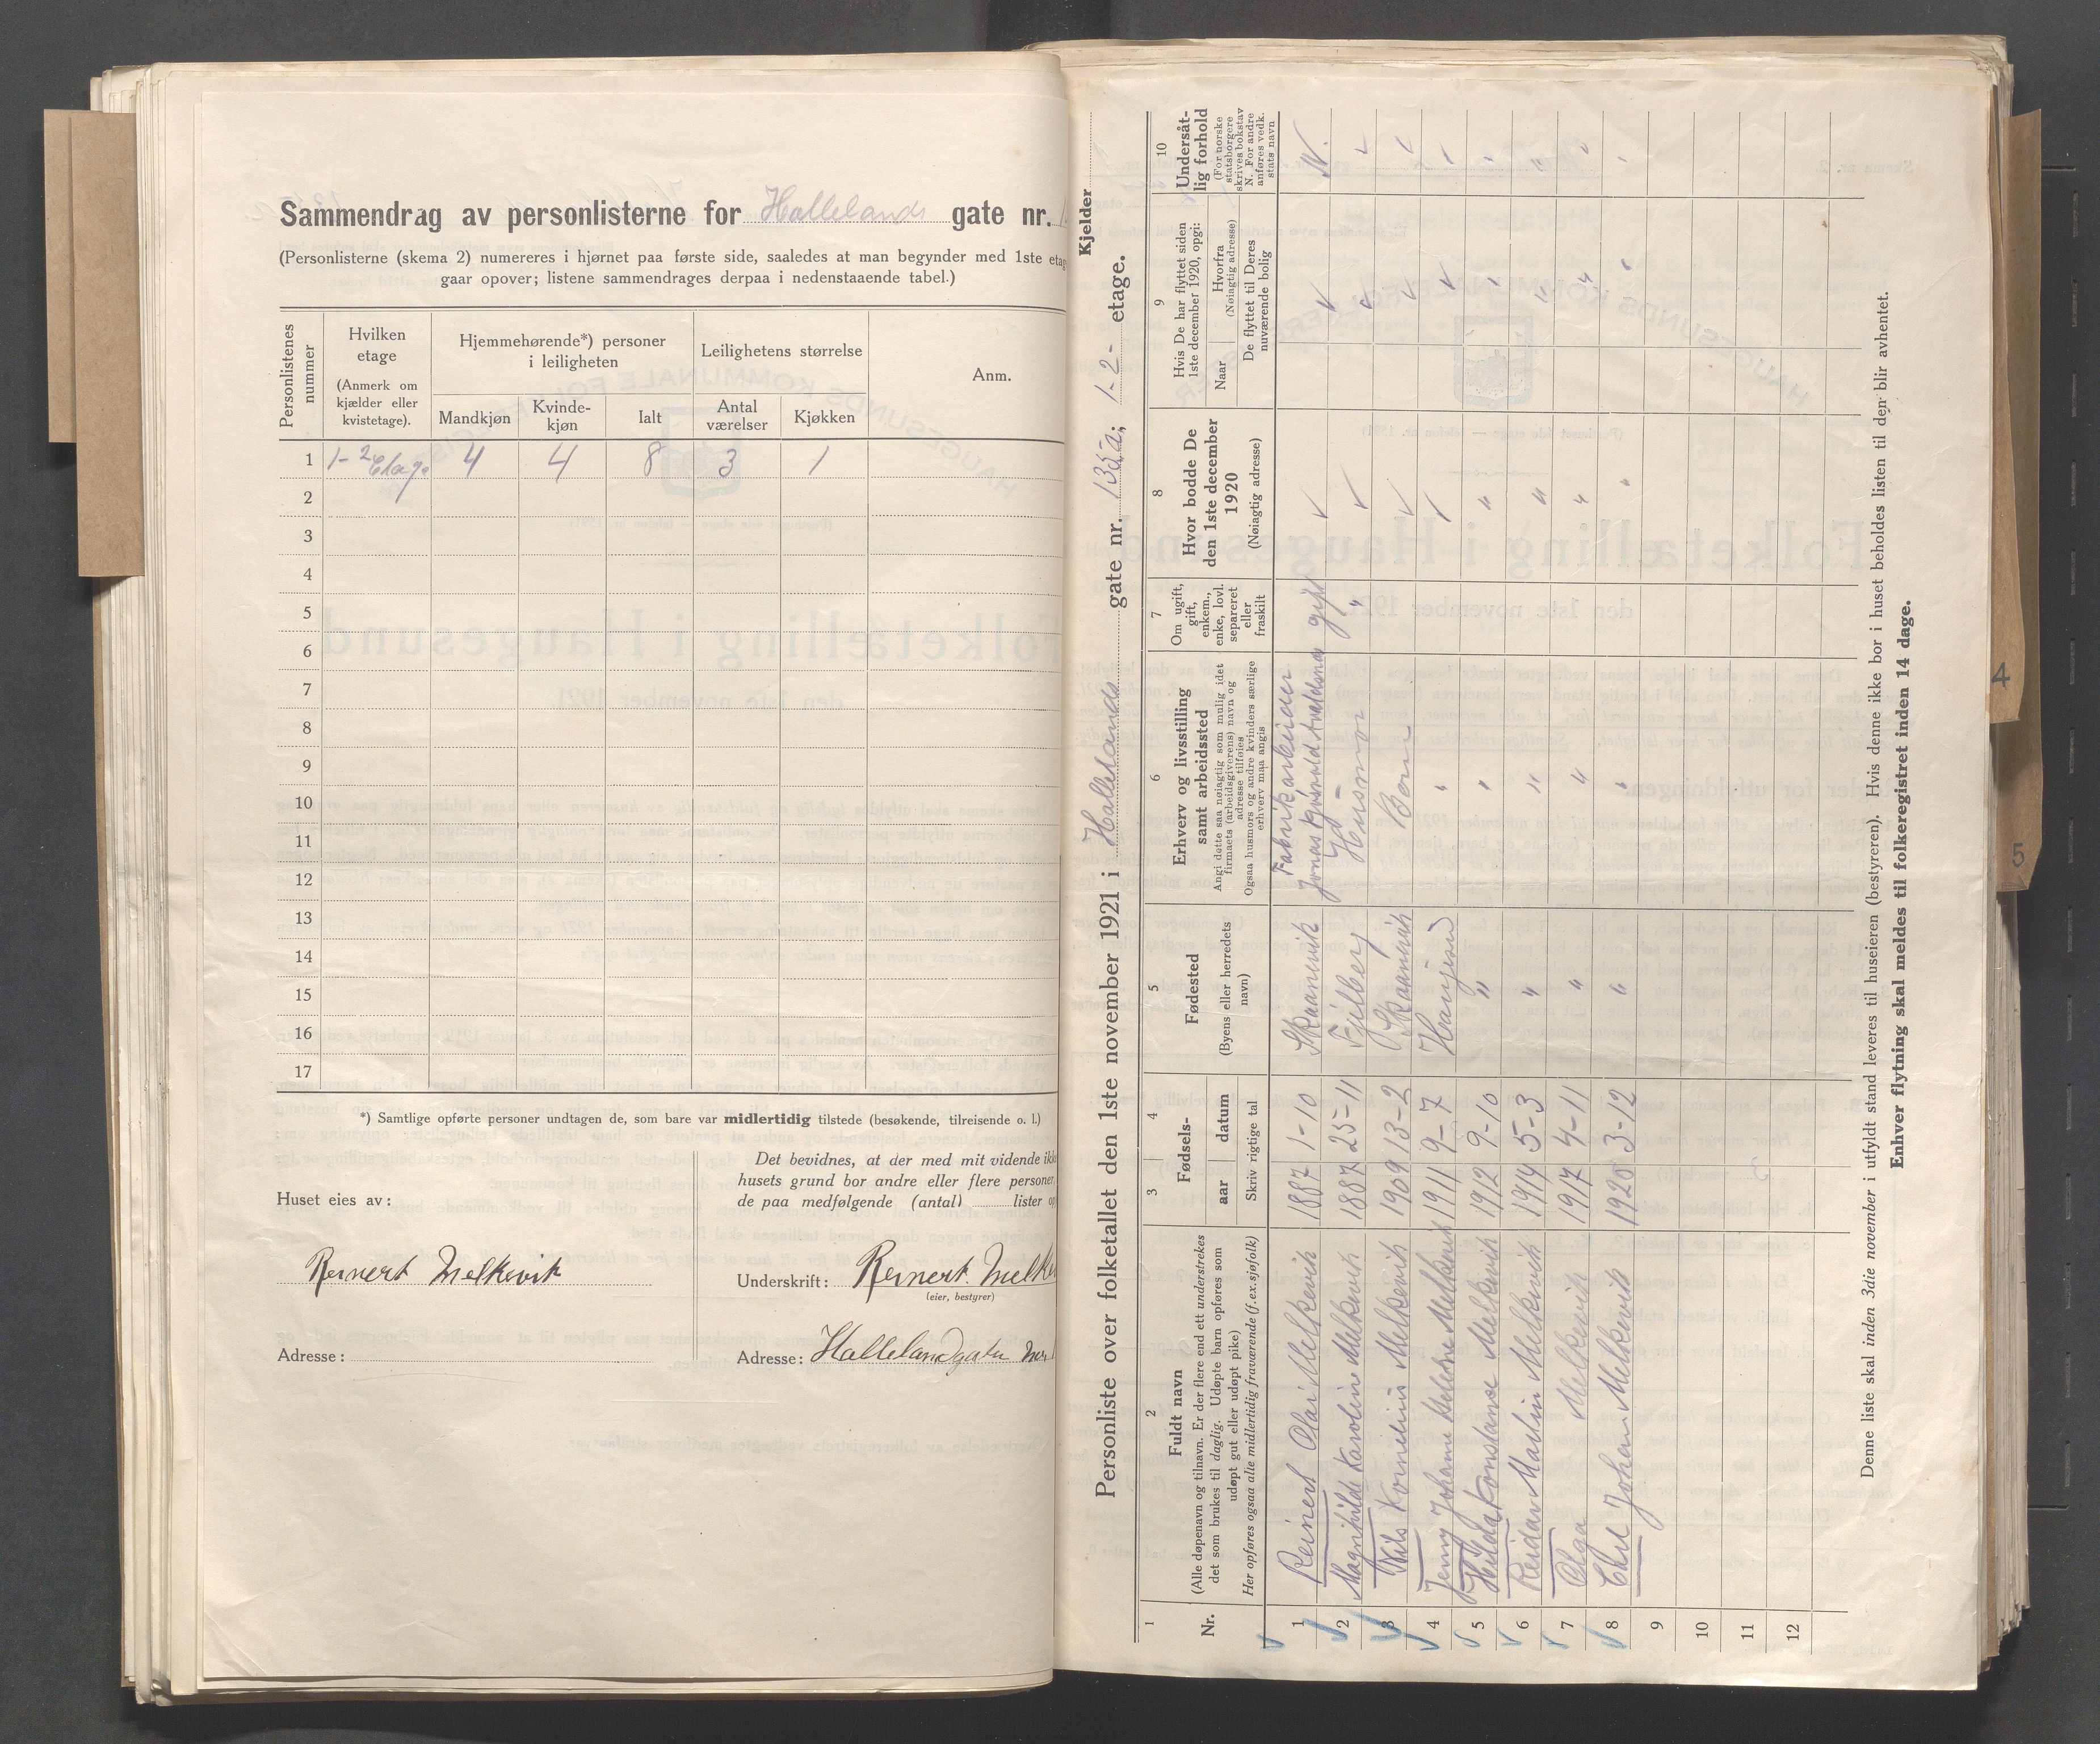 Sammendrag av personlisterne for Hallelands gate nr.
(Personlisterne (skema 2) numereres i hjørnet paa første side, saaledes at man begynder med 1ste etage
gaar opover; listene sammendrages derpaa i nedenstaaende tabel.)
Personlistenes nummer
Hvilken etage
(Anmerk om kjælder eller kvistetage).
Hjemmehørende*) personer i leiligheten
Leilighetens størrelse
Anm.
Mandkjøn
Kvindekjøn
Ialt
Antal værelser
Kjøkken
1 1-2 Etage 4 4 8 3 1
2
3
4
5
6
7
8
9
10
11
12
13
14
15
16
17
*) Samtlige opførte personer undtagen de, som bare var midlertidig tilstede (besøkende, tilreisende o. l.)
Huset eies av:
Reinert Melkevik
Adresse:
Det bevidnes, at der med mit vidende ikke
husets grund bor andre eller flere personer,
de paa medfølgende (antal) lister
Underskrift: Reinert Melke
(eier, bestyrer)
Adresse: Hallelandgaten
Kjelder
Personliste over folketallet den 1ste november 1921 i Hallelands gate nr. 135a; 1-2- etage.
1
Nr.
2
Fuldt navn
(Alle døpenavn og tilnavn. Er der flere end ett understrekes
det som brukes til daglig. Udøpte barn opføres som
udøpt gut eller udøpt pike)
Her opføres ogsaa alle midlertidig fraværende (f. ex. sjøfolk)
3 4
Fødsels-
aar datum
Skriv rigtige tal
5
Fødested
(Byens eller herredets navn)
6
Erhverv og livsstilling
samt arbeidssted
Angi dette saa nøiagtig som mulig idet
firmaets (arbeidsgiverens) navn og
adresse tilføies
Ogsaa husmors og andre kvinders særlige
erhverv maa angis
7
Om ugift,
gift,
enkem.,
enke, lovl.
separeret
eller
fraskilt
8
Hvor bodde De
den 1ste december
1920
(Nøiagtig adresse)
9
Hvis De har flyttet siden
1ste december 1920, opgi:
Naar
Hvorfra
(Nøiagtig adresse)
De flyttet til Deres
nuværende bolig
10
Undersåt-
lig forhold
(For norske
statsborgere
skrives bokstav
N. For andre
anføres vedk.
stats navn
1 Reinert Olai Melkevik 1887 1-10 Skaanevik Fabrikarbeider gift N.
2 Magnhilde Karoline Melkevik 1887 25-11 Fjelberg Husmor "
3 Nils Kornelius Melkevik 1909 13-2 Skaanevik Barn
4 Jenny Johanne Helene Melkevik 1911 9-7 Haugesund "
5 Hulda Konstanse Melkevik 1912 9-10 " " "
6 Reidar Martin Melkevik 1914 5-3 " " "
7 Olga Melkevik 1917 4-11 " " "
8 Johan Melkevik 1920 3-12 " " "
9
10
11
12
Denne liste skal inden 3die november i utfyldt stand leveres til huseieren (bestyreren). Hvis denne ikke bor i huset beholdes listen til den blir avhentet.
Enhver flytning skal meldes til folkeregistret inden 14 dage.
4
5